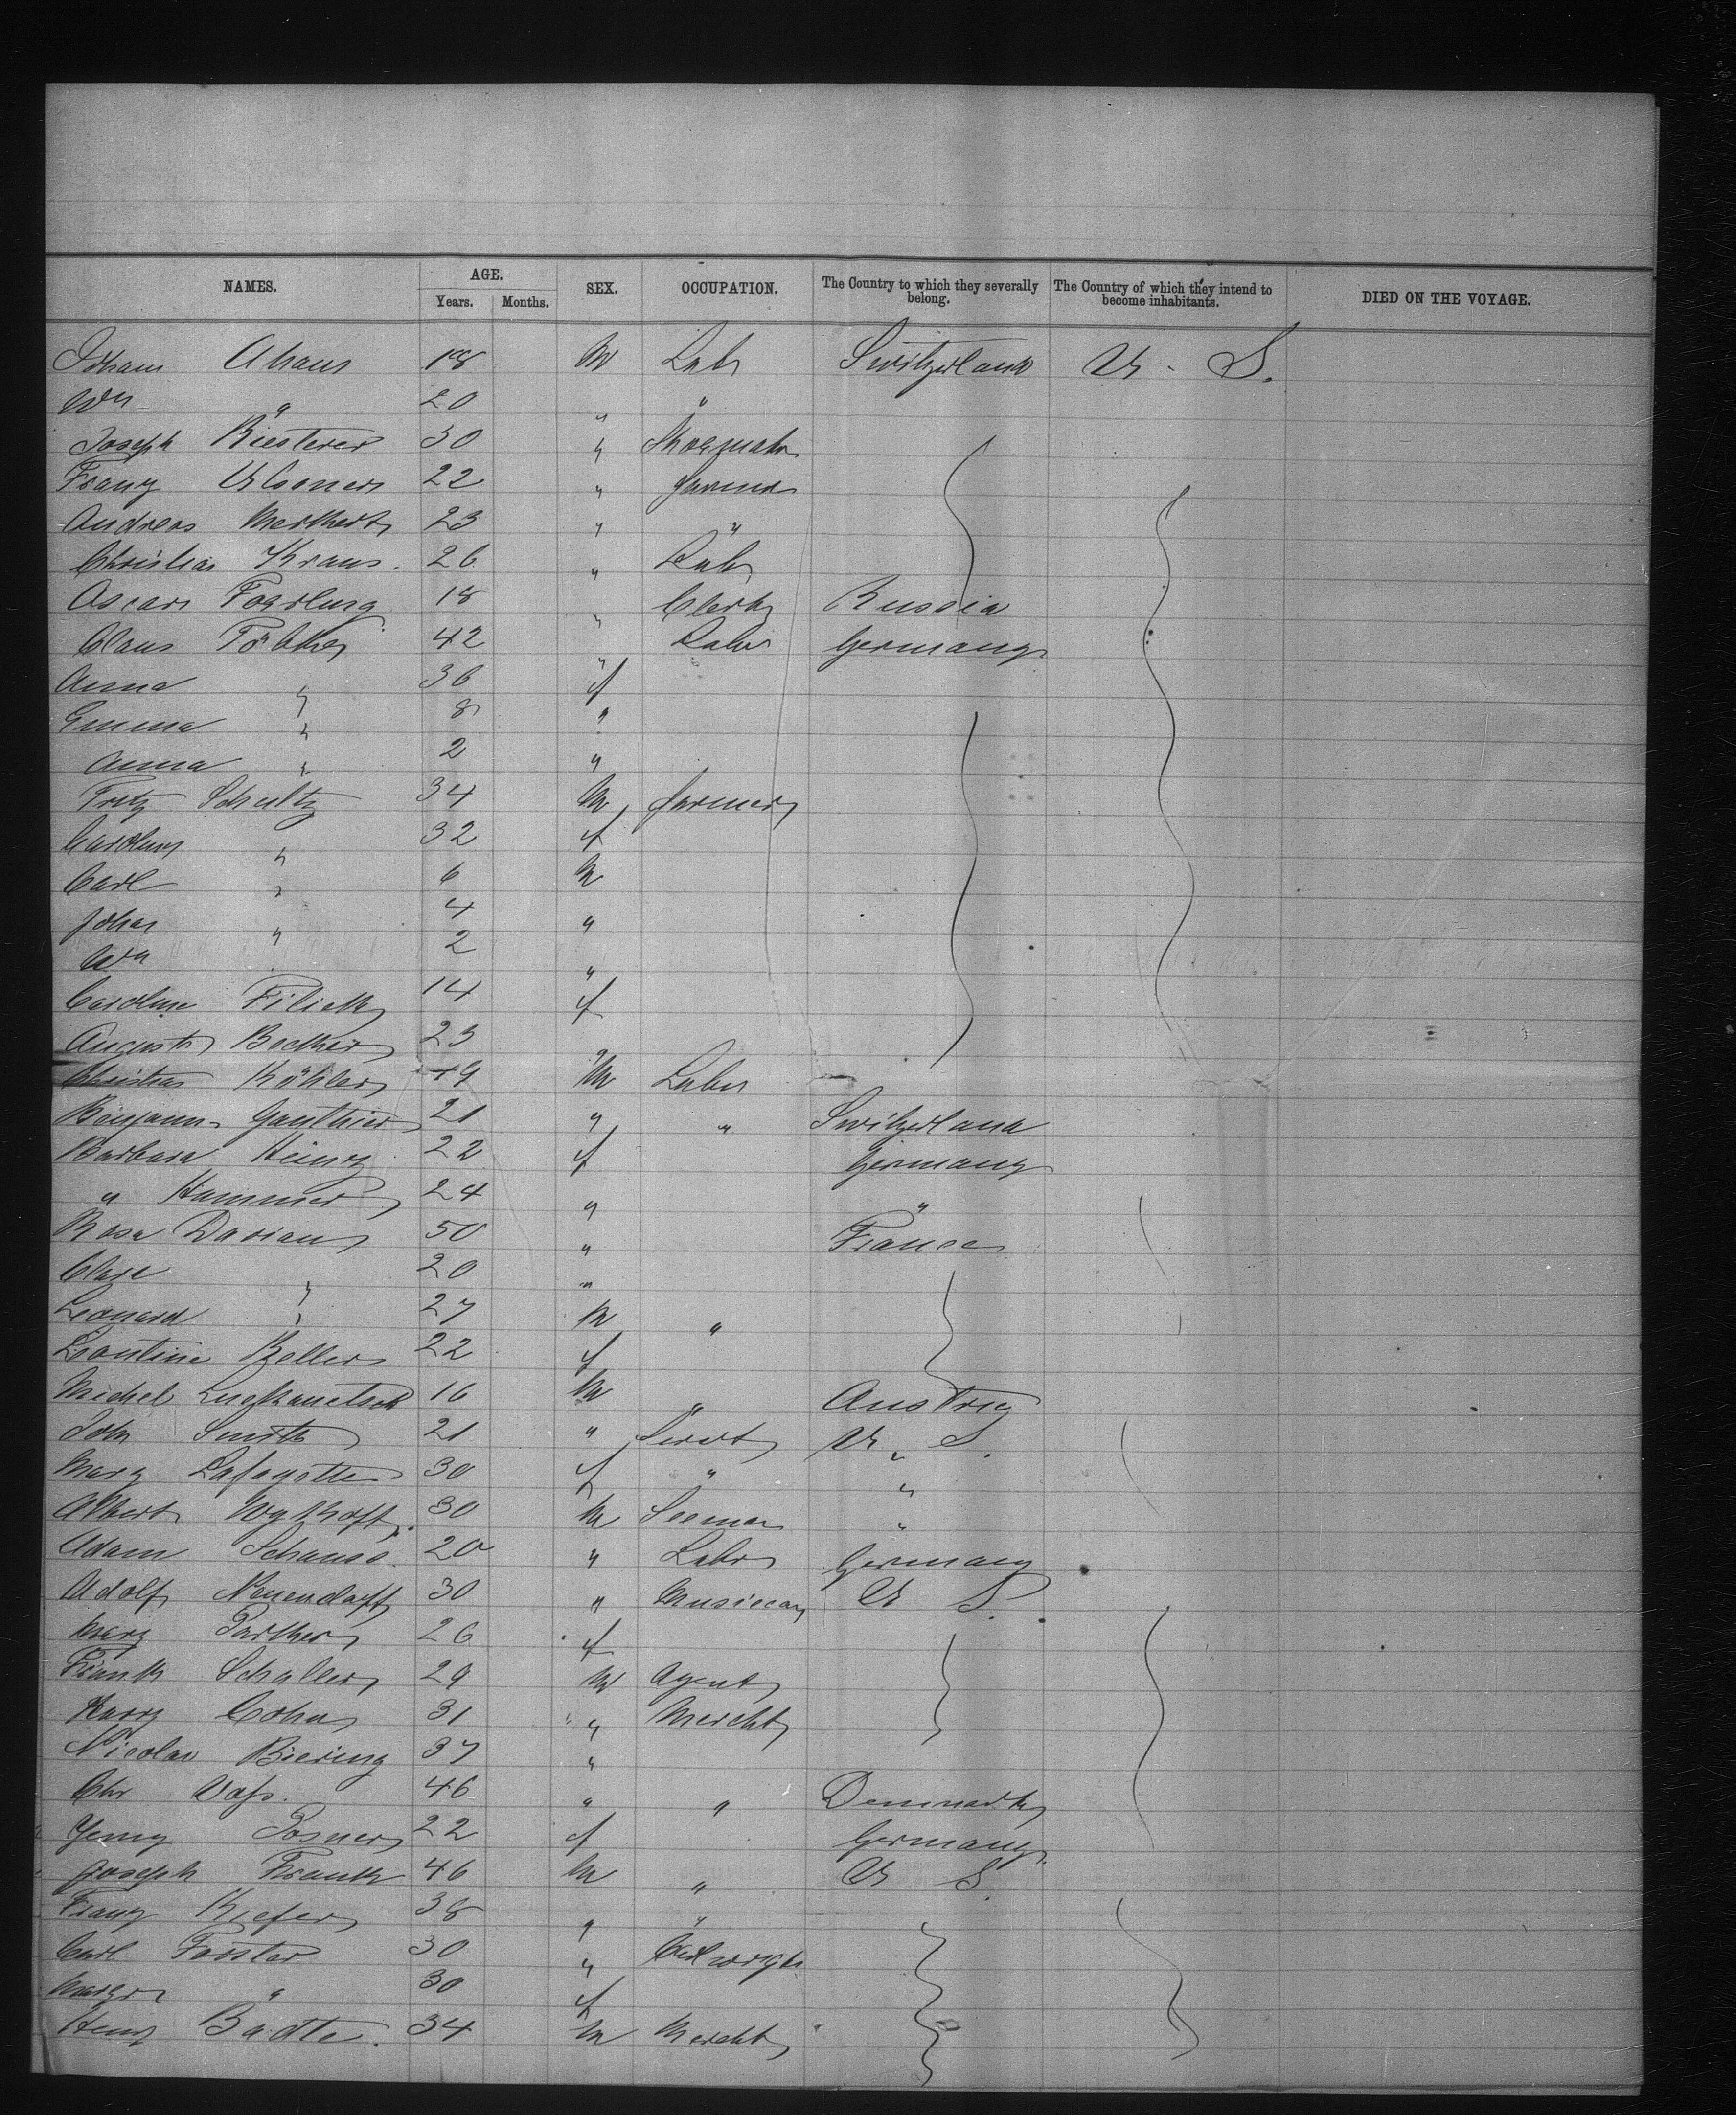 NAMES. AGE. SEX. OCCUPATION. The Country to which they severally belong. The Country of which they intend to become inhabitants. DIED ON THE VOYAGE.
Years. Months.
Johann Ahaus 18 M Labr Switzerland U. S.
Wm " 20 " "
Joseph Riesterer 30 " Shoemakr
Franz 22 " farmer
Andreas 23 " "
Christian Kraus. 26 " Labr
Oscar 18 " Clerk Russia
Claus 42 " Labr Germany
Anna " 36 f
Emma " 8 "
Anna " 2 "
Fritz Schultz 34 M farmer
Caroline " 32 f
Carl " 6 M
Johan " 4 "
Wm 2 "
Caroline 14 f
August Becker 23 "
Christian Köhler 19 M Labr
Benjamin Gauthier 21 " " Switzerland
Barbara Heinz 22 f Germany
" Hammer 24 " "
Rosa Darian 50 " France
Clare " 20 "
Leonard " 27 M "
Leontine Beller 22 f
Michel 16 M " Austria
John Smith 21 " Servt U. S.
Mary Lafayette 30 f " "
Albert Wykhoff. 30 M Seeman "
Adam Schauss. 20 " Labr Germany
Adolf Neuendorff 30 " Musician U S.
Mary 26 f
Frank Schaller 29 M Agent
Harry Cohn 31 " Mercht
Nicolai Biering 37 "
Chr 46 " " Denmark
Jenny Posner 22 f Germany
Joseph Frank 46 M " U S.
Franz Kiefer 38 " "
Carl Forster 30 "
" 30 f
Henry Badte. 34 M Mercht